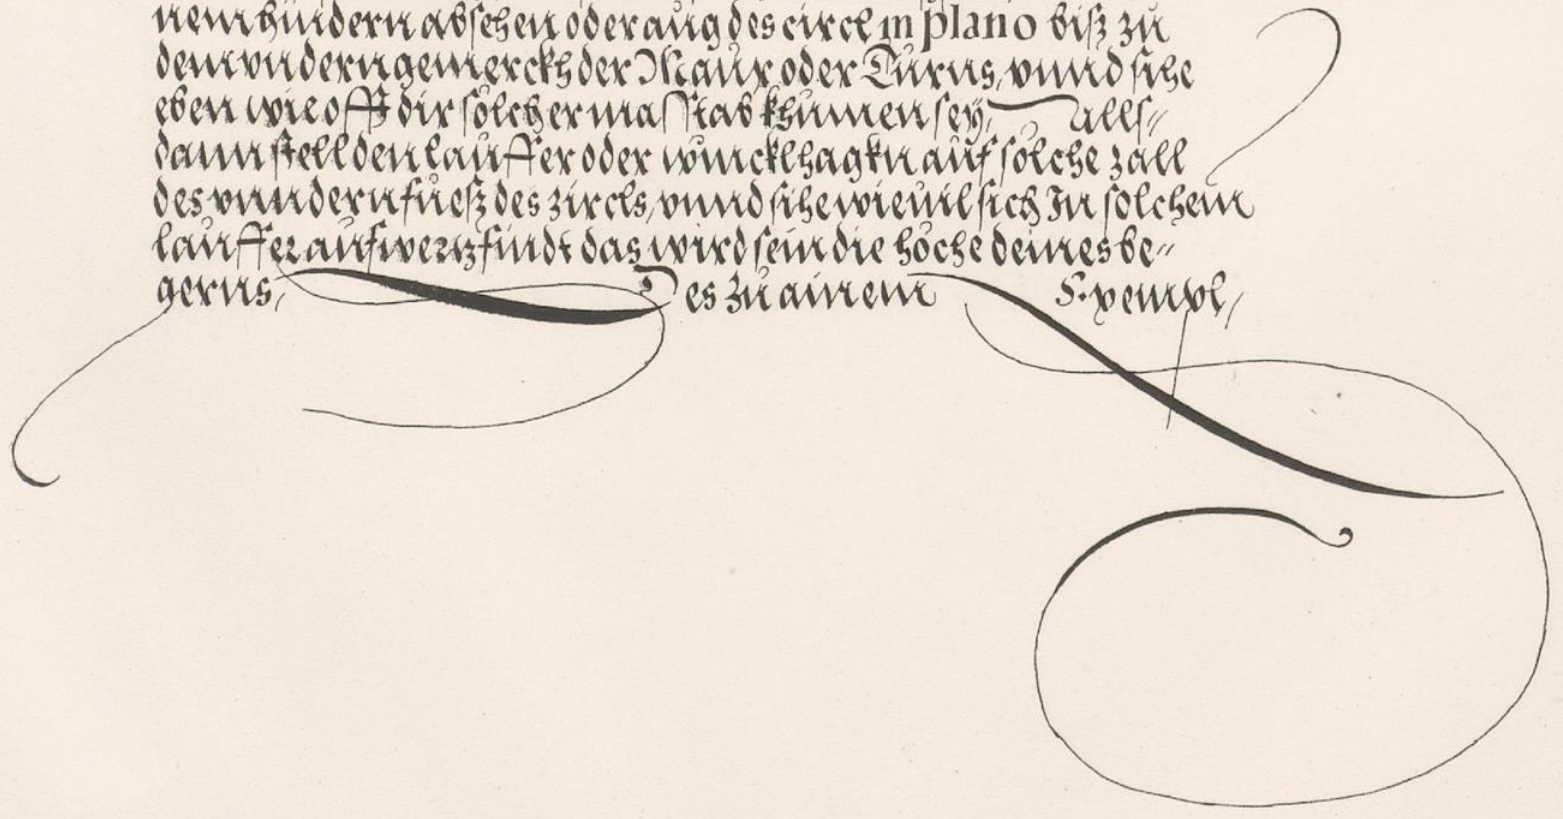 nem hindern absehen oder aug des circl in plano biß zu
dem vndern gemerckh der Maur oder Turns, vnnd sihe
eben wie offt dir solcher masstab khumen sey, Alls-
dann stell den lauffer oder winncklhagkn auf solche zall
des vnndern fueß des zircls, vnnd sihe wieuil sich In solchem
lauffer aufwertz findt das wird sein die höche deines be-
gerns, Des zu ainem Exempl,